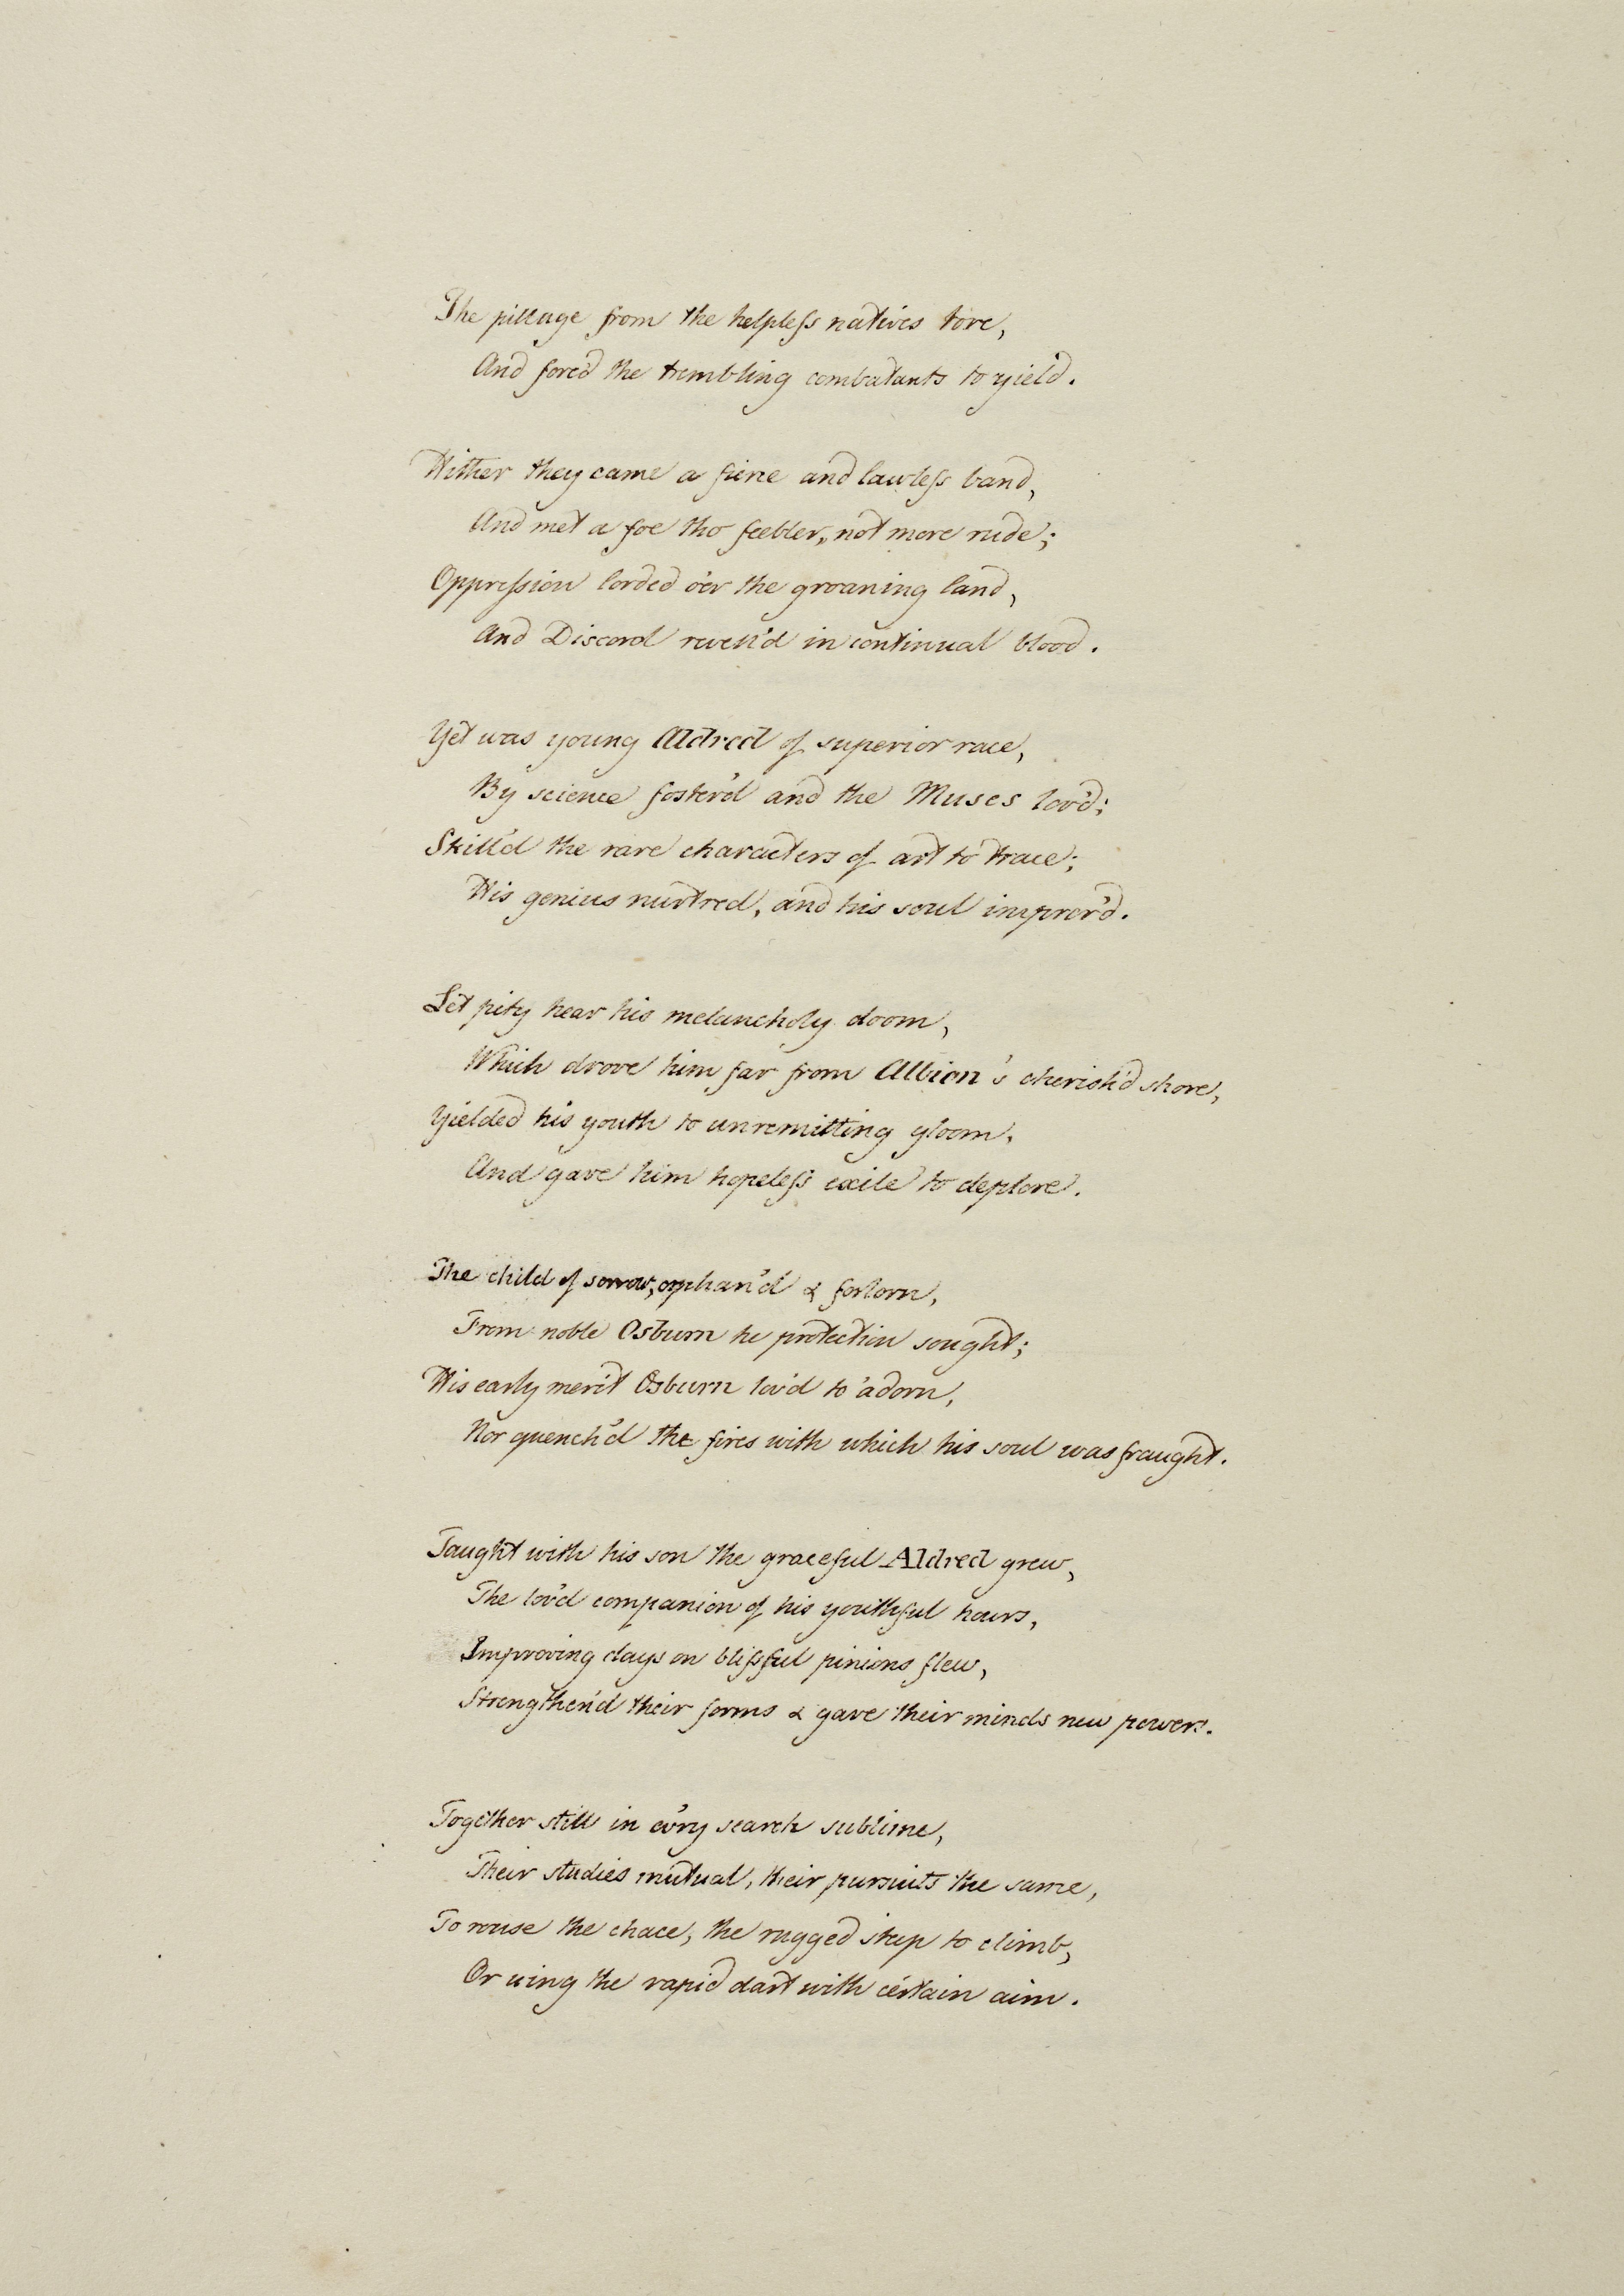 The pillage from the helpless natives tore,
And forc'd the trembling combatants to yield.
Hither they came a fierce and lawless band,
And met a foe tho feebler, not more rude;
Oppression lorded o'er the groaning land,
And Discord revell'd in continual blood.
Yet was young Aldred of superior race,
By science foster'd and the Muses lov'd;
Skill'd the rare characters of art to trace;
His genius nurtred, and his soul improv'd.
Let pity hear his melancholy doom,
Which drove him far from Albion's cherish'd shore,
Yielded his youth to unremitting gloom,
And gave him hopeless exile to deplore.
The child of sorrow, orphan'd & forlorn,
From noble Osburn he protection sought;
His early merit Osburn lov'd to adorn,
Nor quench'd the fires with which his soul was fraught.
Taught with his son the graceful Aldred grew,
The lov'd companion of his youthful hours,
Improving days on blissful pinions flew,
Strengthen'd their forms & gave their minds new powers.
Together still in ev'ry search sublime,
Their studies mutual, their pursuits the same,
To rouse the chace, the rugged steep to climb,
Or wing the rapid dart with certain aim.